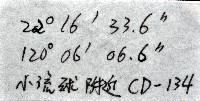 22° 16′ 33.6″
120° 06′ 06.6″
小流球 附近 CD-134